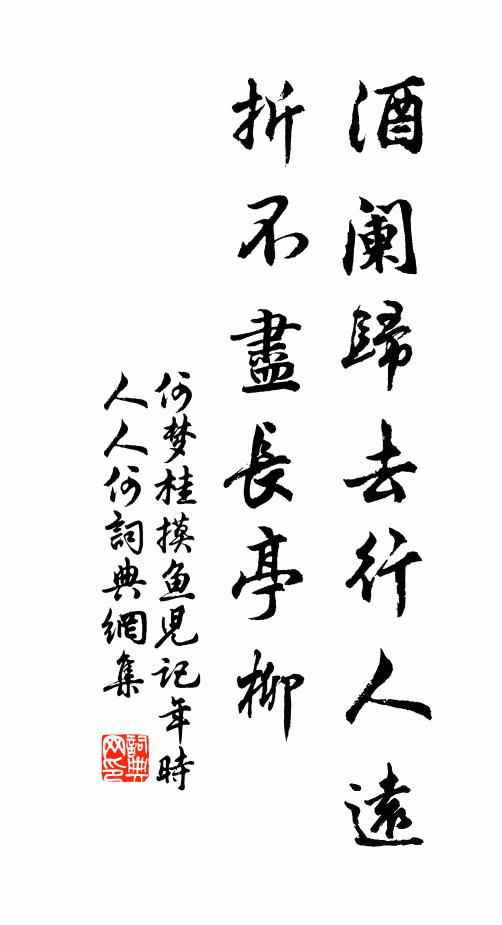 酒阑歸去行人遠
折不盡長亭柳
何梦桂摸鱼児記年時
人人何詞典網集
詞典网印